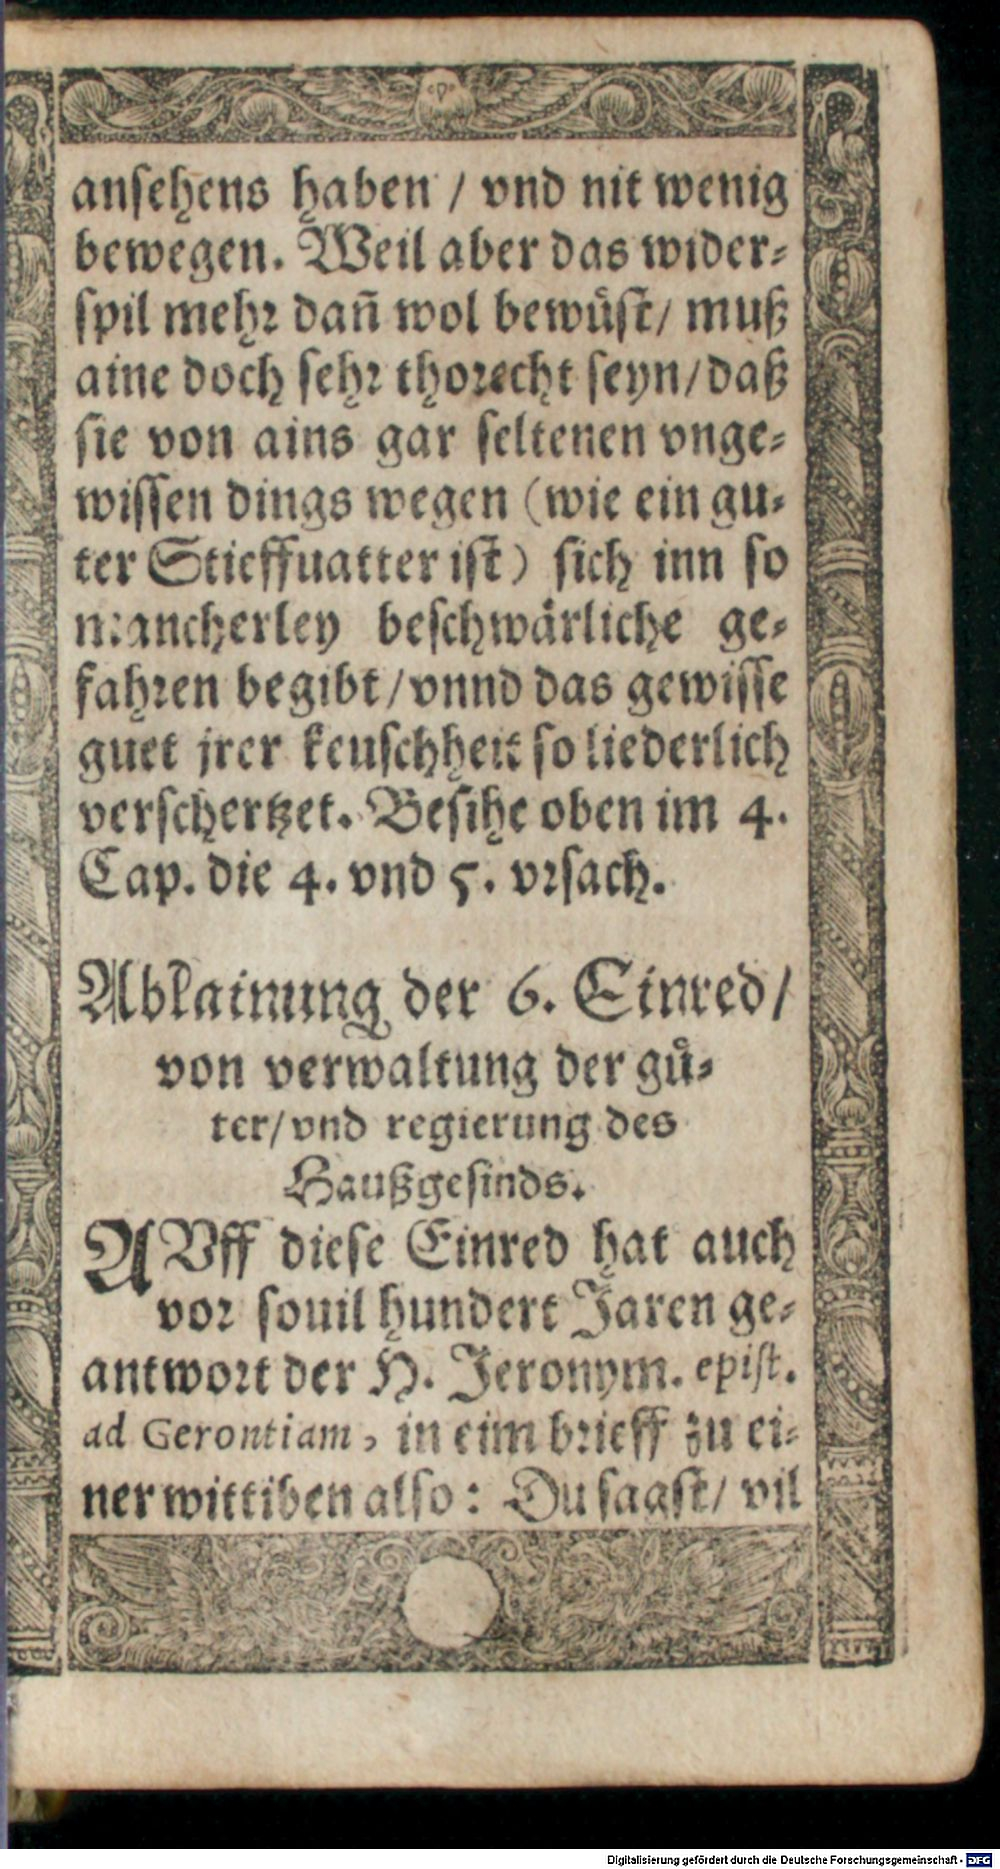 ansehens haben / vnd nit wenig
bewegen. Weil aber das wider-
spil mehr dañ wol bewüst / muß
aine doch sehr thorecht seyn / daß
sie von ains gar seltenen vnge-
wissen dings wegen (wie ein gu-
ter Stieffuatter ist) sich inn so
mancherley beschwärliche ge-
fahren begibt / vnnd das gewisse
guet jrer keuschheit so liederlich
verschertzet. Besihe oben im 4.
Cap. die 4. vnd 5. vrsach.
Ablainung der 6. Einred /
von verwaltung der gü-
ter / vnd regierung des
Haußgesinds.
AVff diese Einred hat auch
vor souil hundert Jaren ge-
antwort der H. Jeronym. epist.
ad Gerontiam, in eim brieff zu ei-
ner wittiben also: Du sagst / vil
Digitalisierung gefördert durch die Deutsche Forschungsgemeinschaft - DFG